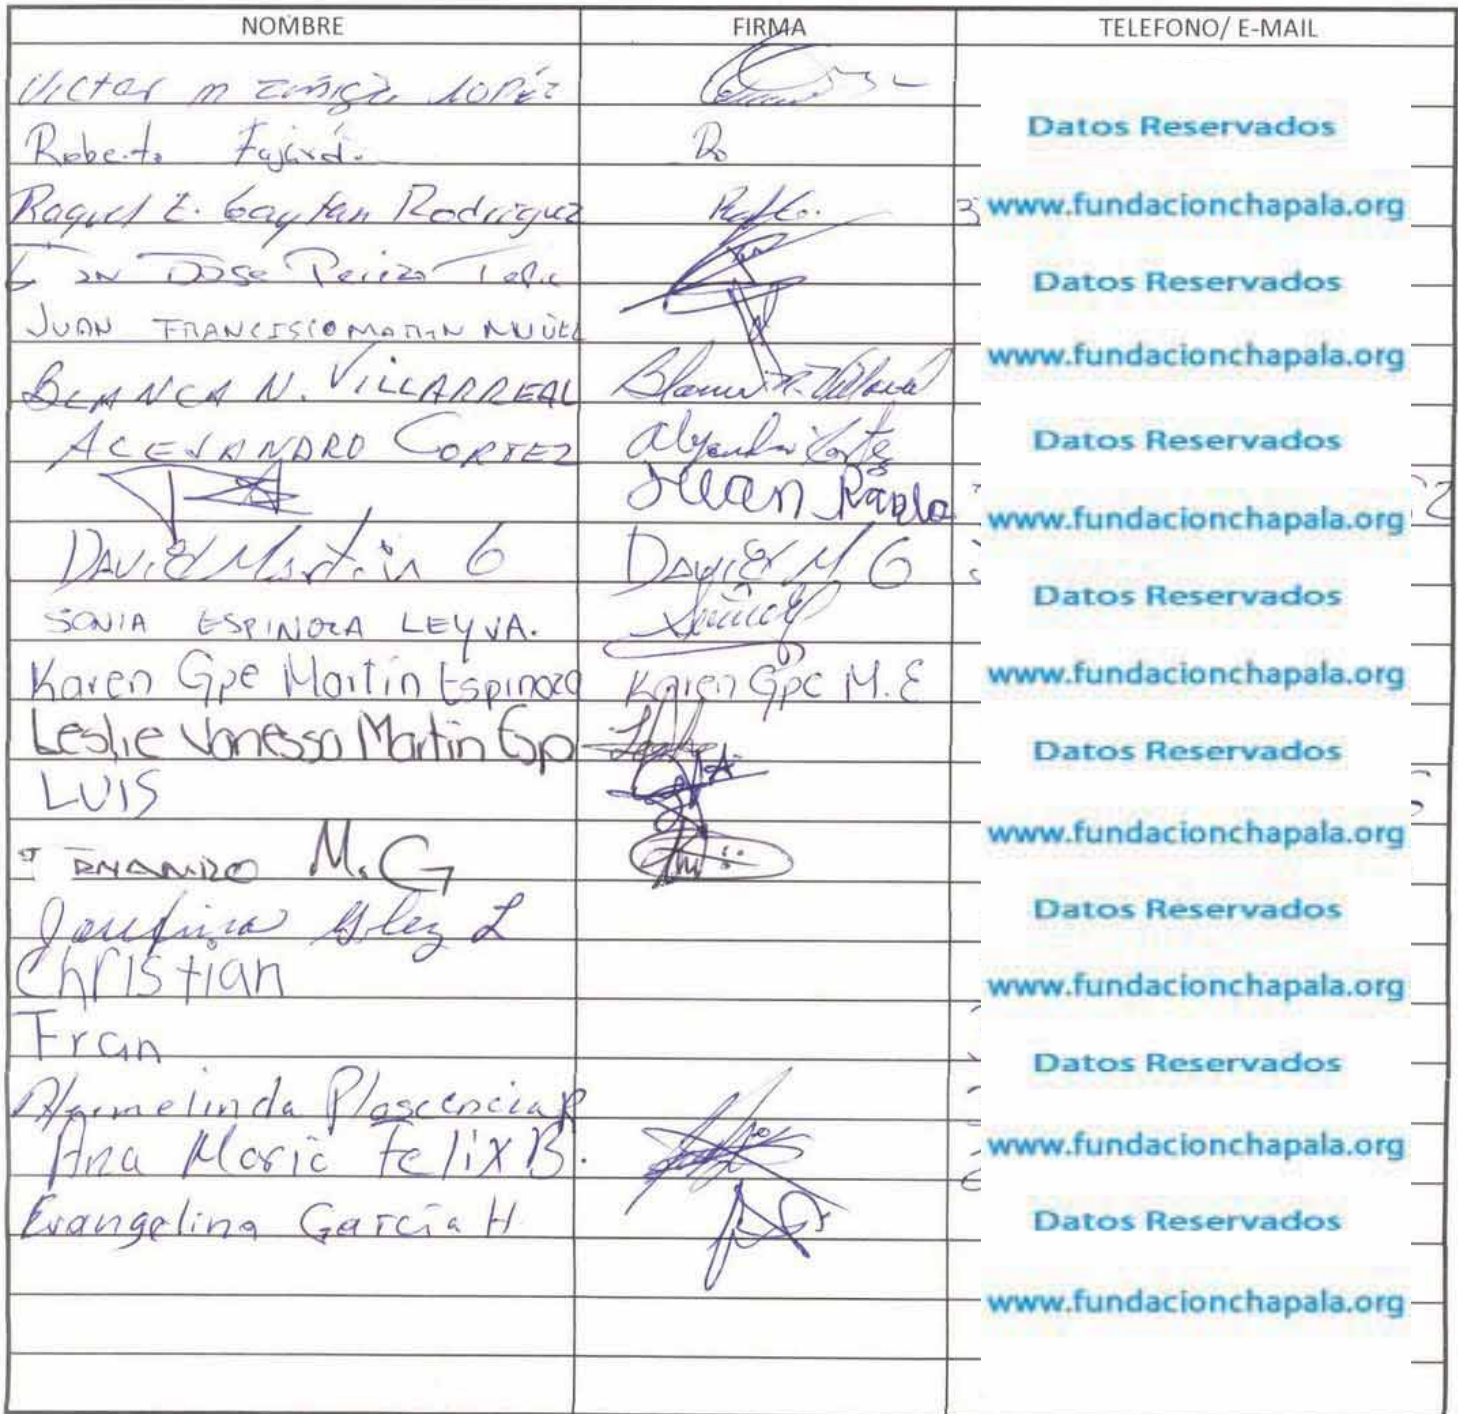 NOMBRE FIRMA TELEFONO/ E-MAIL
Victor m Zuñiga LOPEZ
Datos Reservados
Roberto Fajardo
Raquel E. Gaytan Rodriguez www.fundacionchapala.org
Jose
Datos Reservados
JUAN FRANCISCO MARTIN
www.fundacionchapala.org
BLANCA N. VILLARREAL
ALEJANDRO CORTEZ Alejandro Cortez Datos Reservados
Juan Pablo
www.fundacionchapala.org
DAVID Martin G DAVID M. G
Datos Reservados
SONIA ESPINOZA LEYVA.
Karen Gpe Martin Espinoza Karen Gpe M. E www.fundacionchapala.org
Leslie Vanessa Martin Esp Datos Reservados
LUIS
www.fundacionchapala.org
M. G
Josefina Glez L Datos Reservados
Christian www.fundacionchapala.org
Fran
Datos Reservados
Hermelinda Plascencia R
Ana Maria Felix B. www.fundacionchapala.org
Evangelina García H. Datos Reservados
www.fundacionchapala.org